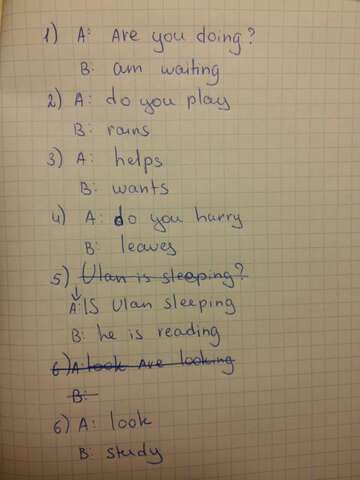 1) A: Are you doing?
B: am waiting
2) A: do you play
B: rains
3) A: helps
B: wants
4) A: do you hurry
B: leaves
5) Ulan is sleeping?
A: IS Ulan sleeping
B: he is reading
6) A: look Are looking
B:
6) A: look
B: study